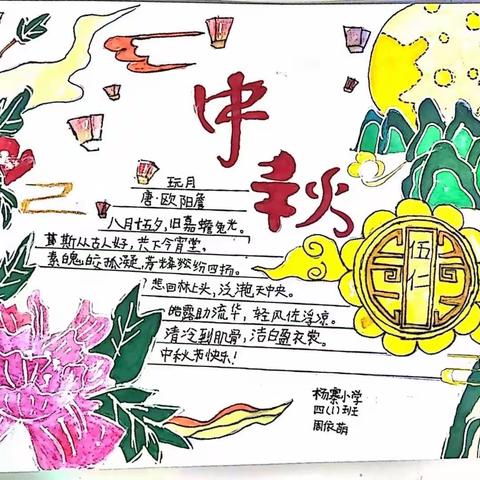 中秋
玩月
唐·欧阳詹
八月十五夕,旧嘉蟾兔光。
斯从古人好,共下今宵堂。
素魄皎孤凝,芳辉纷四扬。
徘徊林上头,泛滟天中央。
皓露助流华,轻风佐浮凉。
清冷到肌骨,洁白盈衣裳。
中秋节快乐!
伍仁
杨寨小学
四(1)班
周依萌